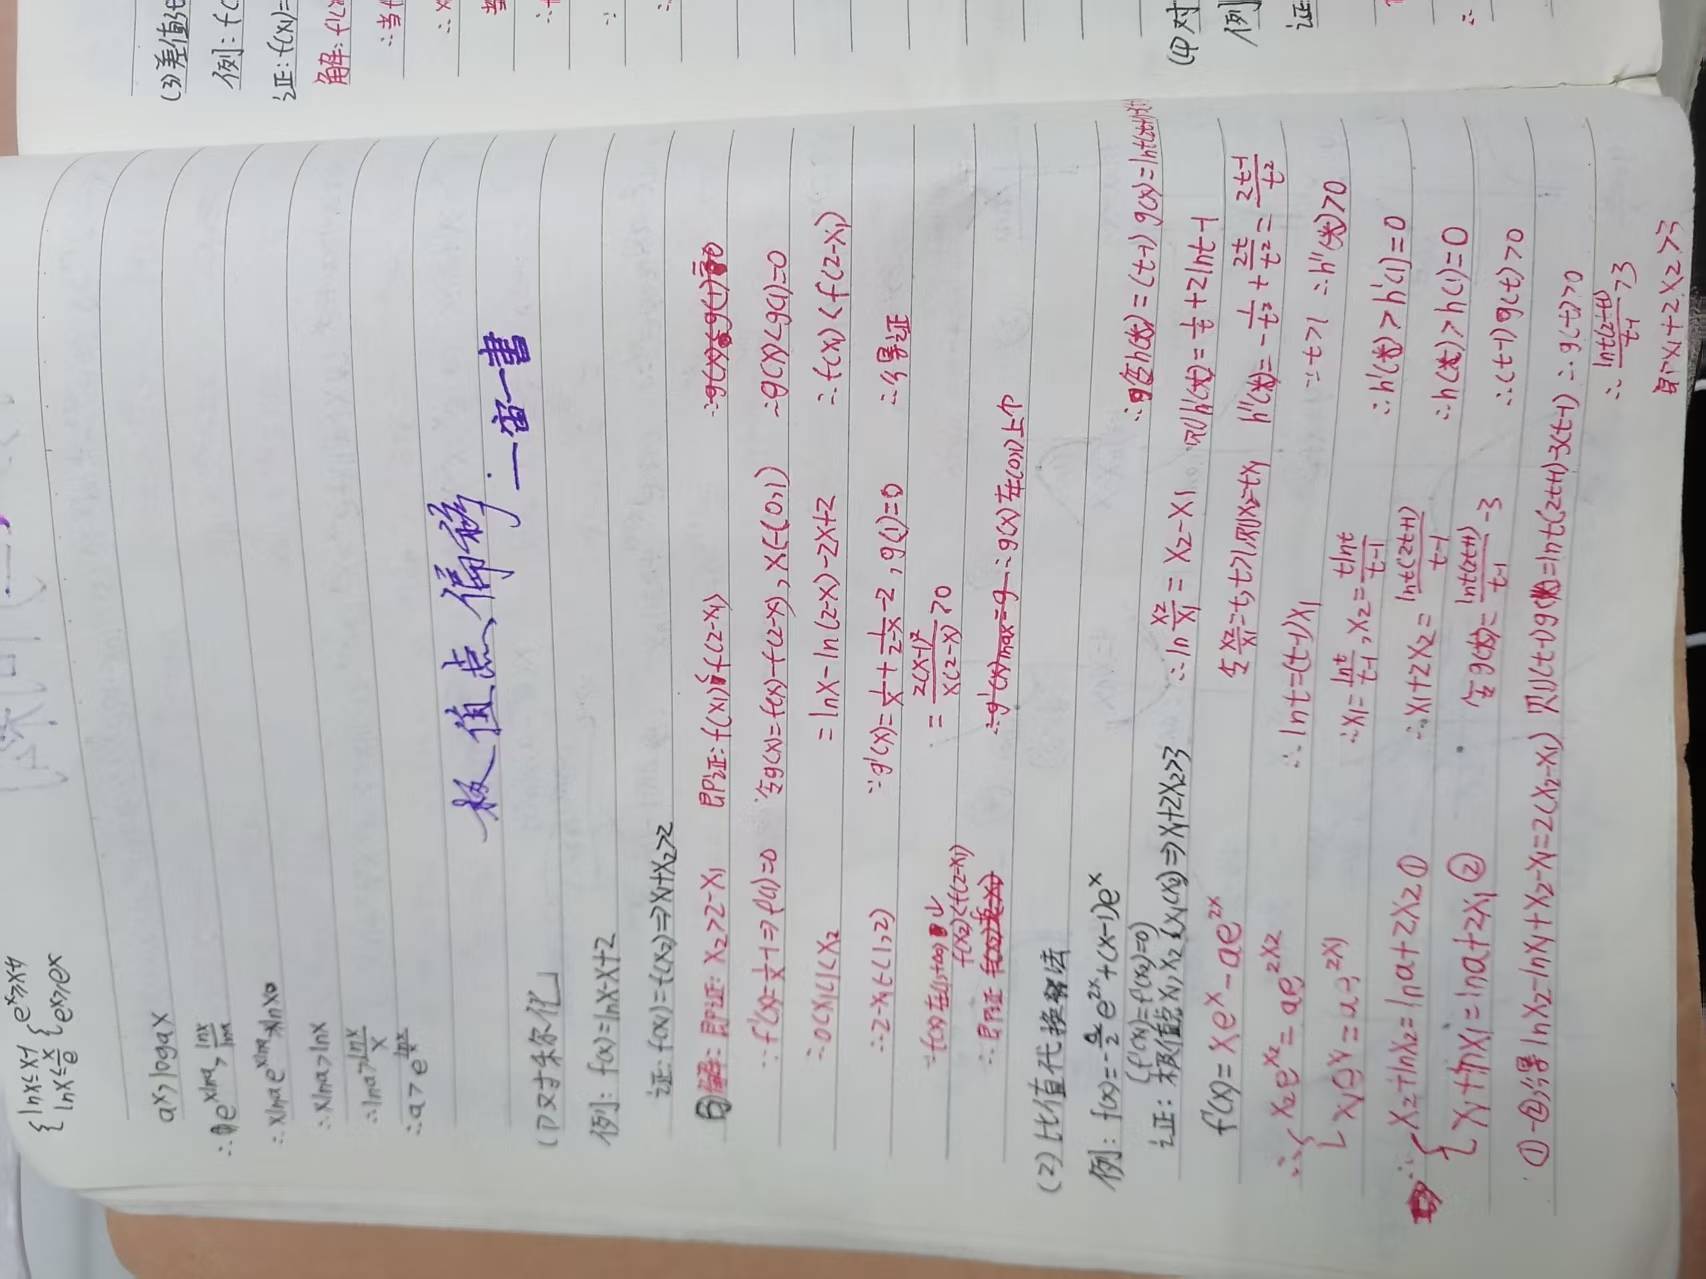 { lnx≤x-1
lnx≤x/e
{ e^x≥x+1
e^x≥ex
a^x>log_a x
∴e^xlna>lnx/lna
∴xlna e^xlna>xlnx
∴xlna>lnx
∴lna>lnx/x
∴a>e^(lnx/x)
极值点偏移
(1)对称化
例:f(x)=lnx-x+2
证:f(x1)=f(x2)⇒x1+x2>2
解:即证:x2>2-x1
∵f'(x)=1/x-1⇒f'(1)=0
∴0<x1<1<x2
∴2-x1∈(1,2)
∵f(x)在(1,+∞)↓
∴即证 f(x2)<f(2-x1)
即证:f(x1)<f(2-x1)
令g(x)=f(x)-f(2-x),x∈(0,1)
=lnx-ln(2-x)-2x+2
∵g'(x)=1/x+1/(2-x)-2,g'(1)=0
=2(x-1)²/x(2-x)>0
∴g(x)在(0,1)上个
∴g(x)<g(1)=0
∴f(x1)<f(2-x1)
∴得证
(2)比值代换法
例:f(x)=-a/2 e^2x+(x-1)e^x
(f'(x1)=f'(x2)=0)
证:极值点x1,x2(x1<x2)⇒x1+2x2>3
f'(x)=xe^x-ae^2x
∴{ x2e^x2=ae^2x2
x1e^x1=ae^2x1
∴{ x2+lnx2=lna+2x2①
x1+lnx1=lna+2x1②
①-②得lnx2-lnx1+x2-x1=2(x2-x1)
∴ln x2/x1=x2-x1
令x2/x1=t,t>1,则x2=tx1
∴lnt=(t-1)x1
∴x1=lnt/(t-1),x2=tlnt/(t-1)
∴x1+2x2=lnt(2t+1)/(t-1)
令g(t)=lnt(2t+1)/(t-1)-3
则(t-1)g(t)=lnt(2t+1)-3(t-1)
则h'(t)=1/t+2lnt-1
h''(t)=-1/t²+2t/t²=2t-1/t²
∵t>1 ∴h''(t)>0
∴h'(t)>h'(1)=0
∴h(t)>h(1)=0
∴(t-1)g(t)>0
∴g(t)>0
∴lnt(2t+1)/(t-1)>3
即x1+2x2>3
(3)差值
例:f(
证:f(x1)=
解:f(x
∴当
(4)对
例
证